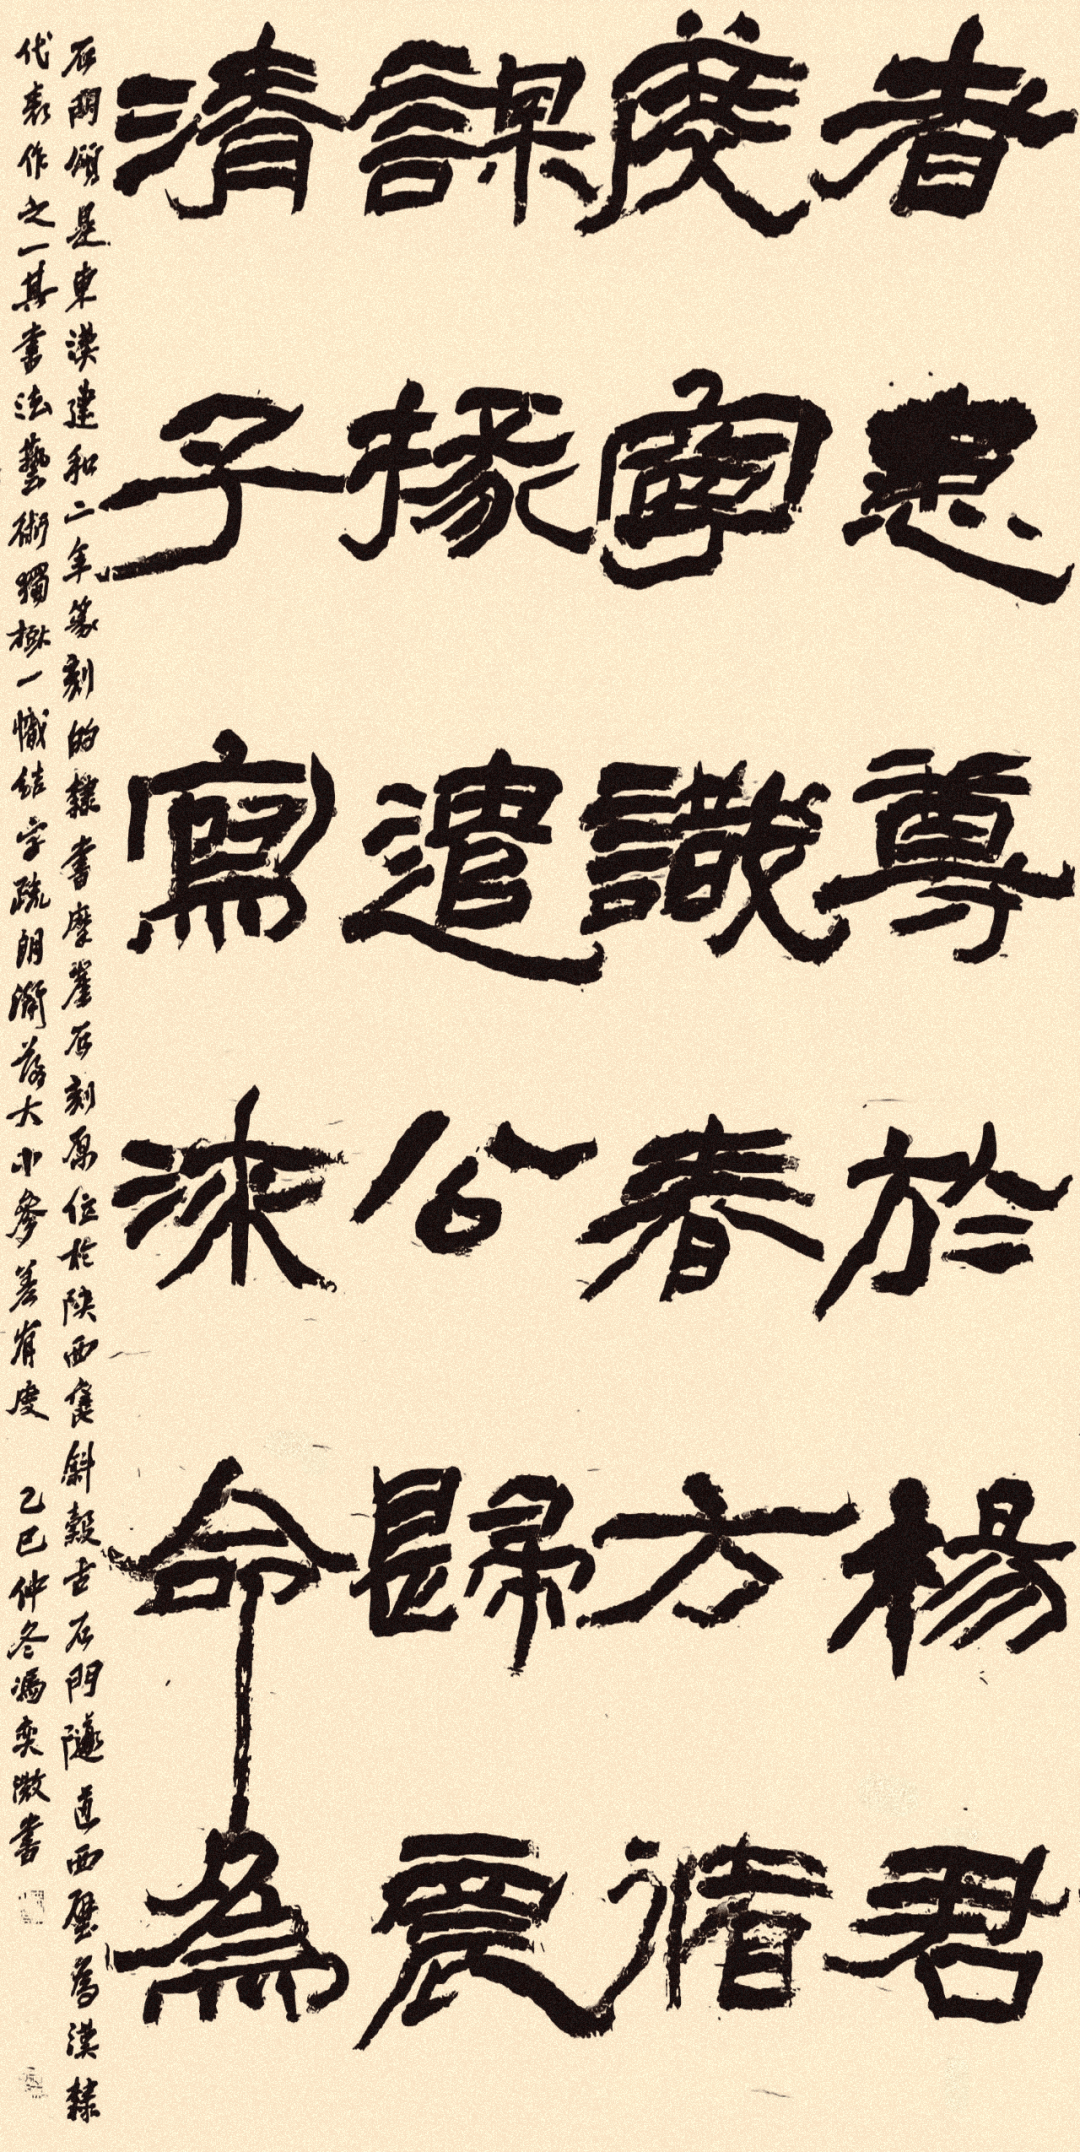 者恩尊於楊君
度寧識春方
課掾遣公歸震
清子寫沫命為
石門頌是東漢建和二年篆刻的隸書摩崖石刻原位於陝西褒斜穀古石門隧道西壁為漢隸
代表作之一其書法藝術獨樹一幟結字疏朗瀟落大小參差有度 乙巳仲冬馮奕微書